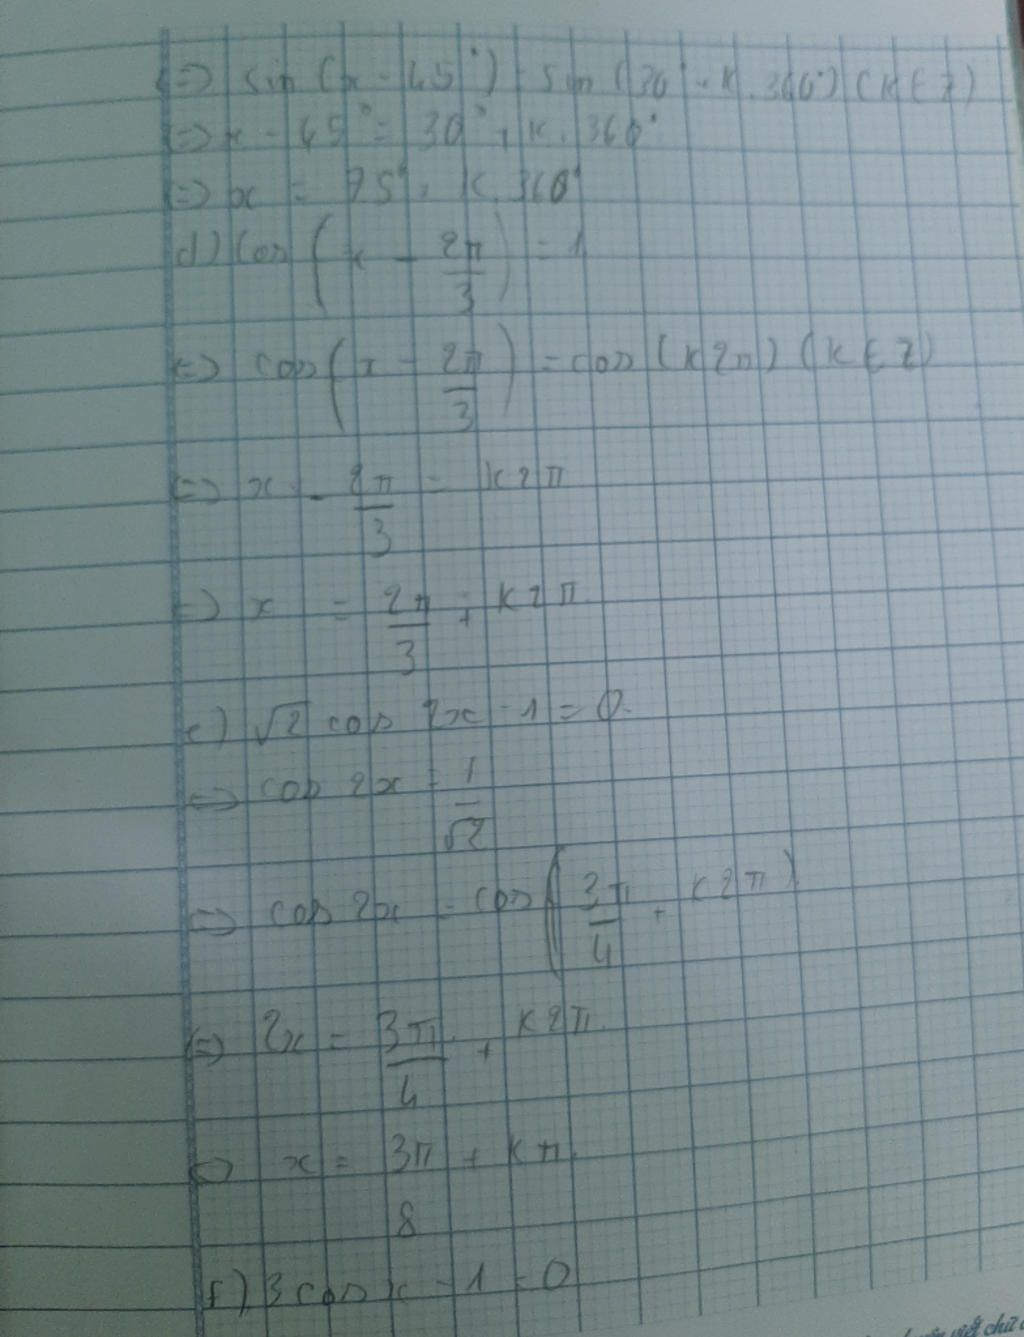 <=> sin (x - 45°) = sin (30° + k.360°) (k ∈ Z)
<=> x - 45° = 30° + k.360°
<=> x = 75° + k.360°
d) cos (x - 2π/3) = 1
<=> cos (x - 2π/3) = cos (k2π) (k ∈ Z)
<=> x - 2π/3 = k2π
<=> x = 2π/3 + k2π
e) √2 cos 2x - 1 = 0
<=> cos 2x = 1/√2
<=> cos 2x = cos (3π/4 + k2π)
<=> 2x = 3π/4 + k2π
<=> x = 3π/8 + kπ
f) 3 cos x - 1 = 0
viết chữ